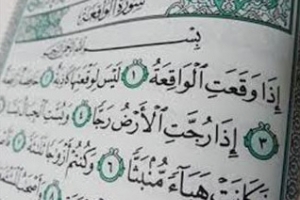 سورة الواقعة
بِسْمِ اللَّهِ الرَّحْمَٰنِ الرَّحِيمِ
إِذَا وَقَعَتِ الْوَاقِعَةُ ١ لَيْسَ لِوَقْعَتِهَا كَاذِبَةٌ ٢ خَافِضَةٌ
٣ إِذَا رُجَّتِ الْأَرْضُ رَجًّا ٤ وَبُسَّتِ الْجِبَالُ
فَكَانَتْ هَبَاءً مُّنبَثًّا ٦ وَكُنتُمْ أَزْوَاجًا ثَلَاثَةً ٧
٨